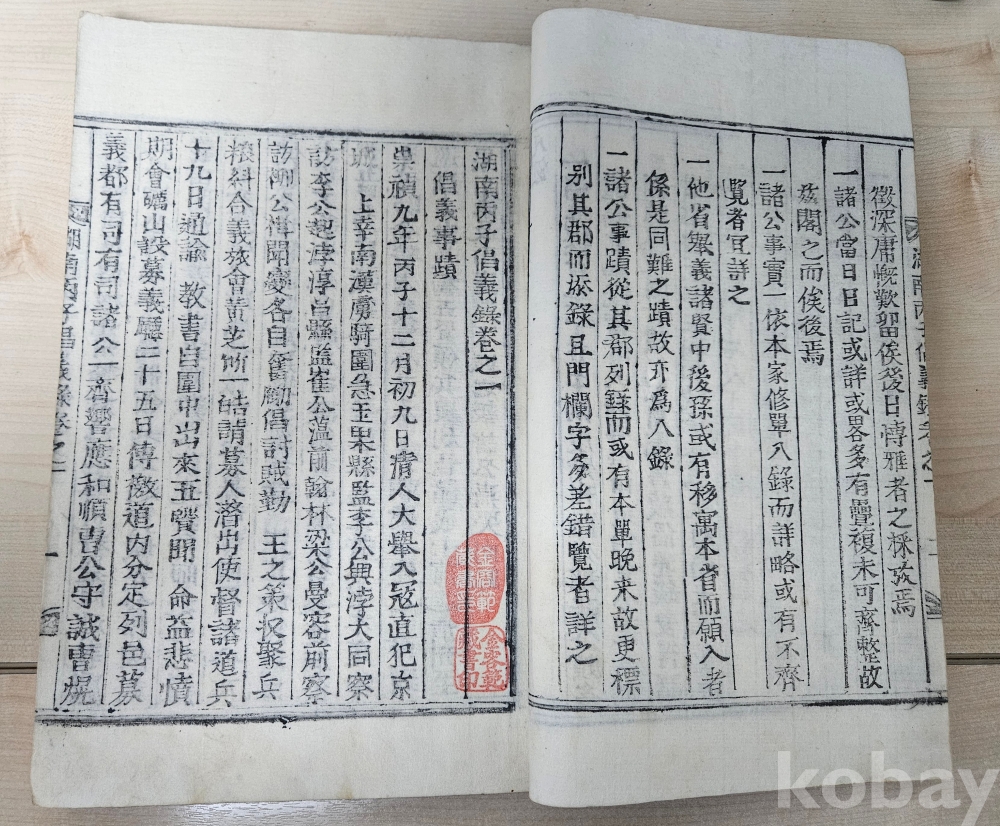 徵深庸慨歎留俟後日博雅者之採孜焉
一諸公當日日記或詳或畧多有疊複未可齊整故
玆閣之而俟後焉
一諸公事實一依本家修單入錄而詳略或有不齊
覽者宜詳之
一他省舉義諸賢中後孫或有移寓本省而願入者
係是同難之蹟故亦爲入錄
一諸公事蹟從其郡列錄而或有本單晚来故更標
别其郡而添錄且門欄字多差錯覽者詳之
湖南丙子倡義錄卷之一
倡義事蹟
崇禎九年丙子十二月初九日淸人大擧入寇直犯京
城 上幸南漢虜騎圍急玉果縣監李公興浡大同察
訪李公起浡淳昌縣監崔公蘊前翰林梁公曼容前察
訪柳公楫聞變各自奮勵倡討賊勤 王之策收聚兵
粮糾合義旅會黃芝 一皓請募人潛出使督諸道兵
十九日通諭 教書自圍中出來五賢聞 命益悲憤
期會礪山設募義廳二十五日傳檄道内分定列邑募
義都有司有司諸公一齊響應和順曺公守誠曺熀
湖南丙子倡義錄卷之一
一
金容範
藏書印
kobay